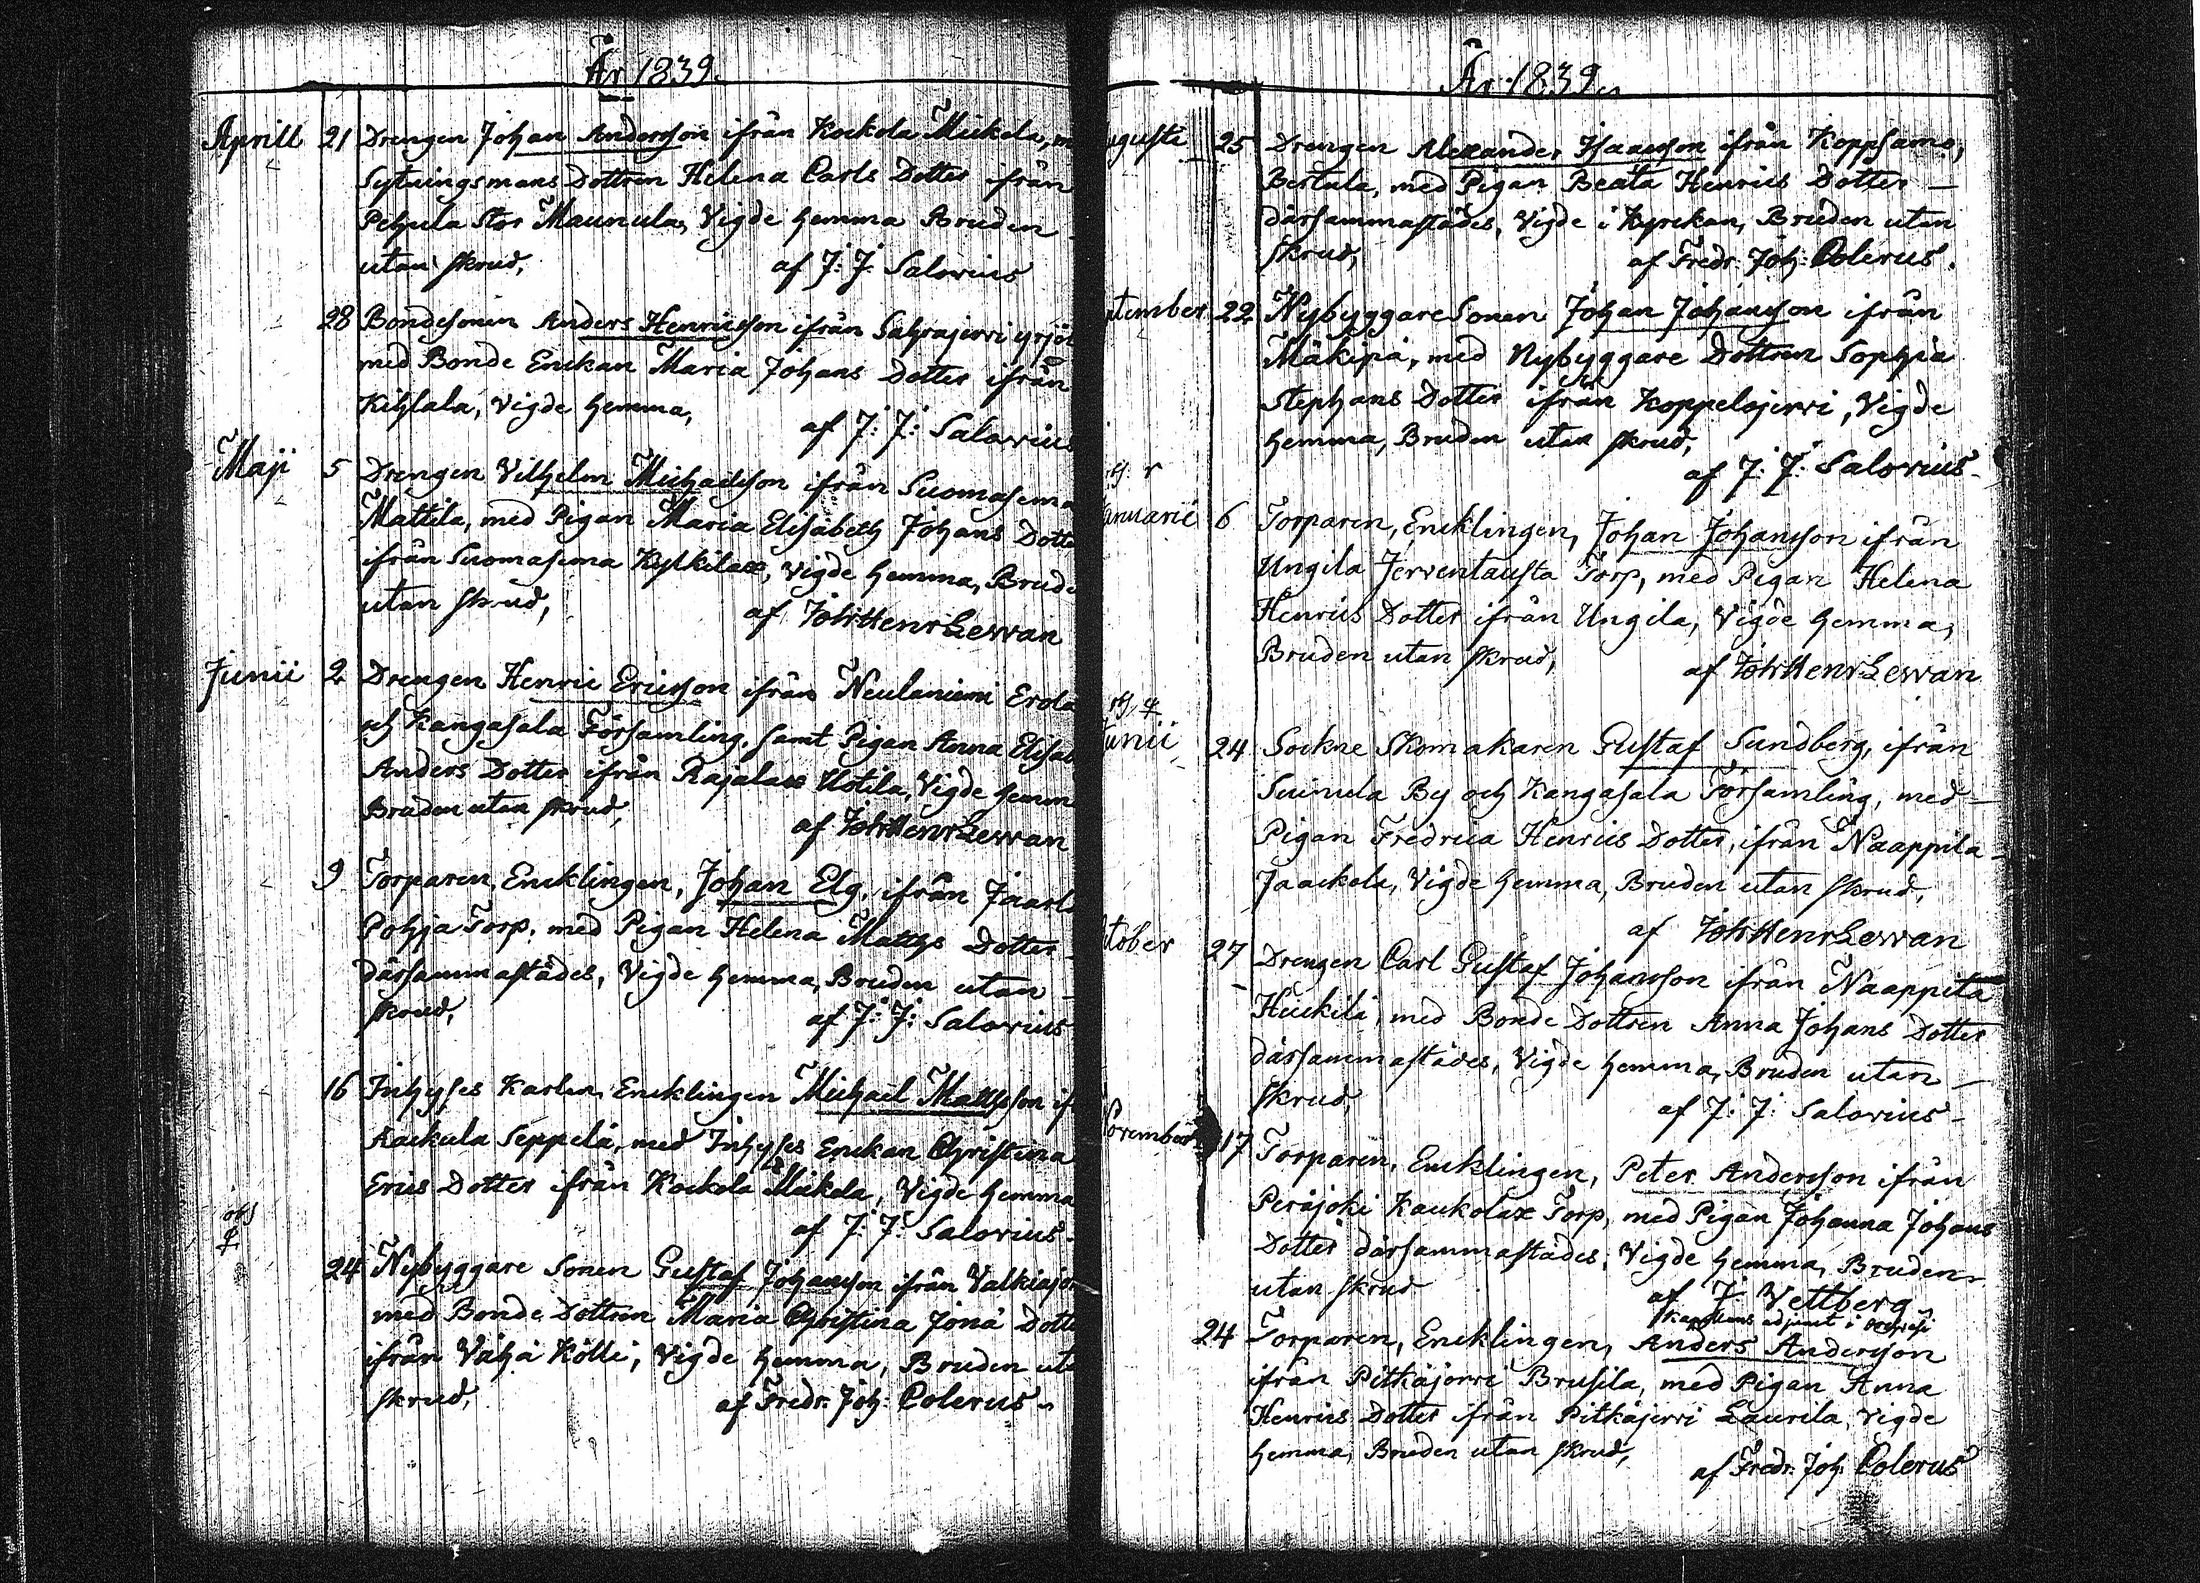 År 1839.
Aprill 21 Drengen Johan Andersson ifrån Kockola Mickola,
Sytningsmans Dottren Helena Carls Dotter ifrån
Pehula Stor Maunula, Vigde hemma Bruden
utan skrud, af J: J: Salovius
28 Bondesonen Anders Henricsson ifrån Sahrajerri
med Bonde Enckan Maria Johans Dotter ifrån
Kihlala, Vigde hemma,
af J: J: Salovius
Maji 5 Drengen Vilhelm Michaelsson ifrån Suomasema
Mattila, med Pigan Maria Elisabeth Johans
ifrån Suomasema Kylkilax, Vigde hemma,
utan skrud, af Joh Henr Lewan
Junii 2 Drengen Henric Ericsson ifrån Neulaniemi Erola
och Kangasala Församling, samt Pigan Anna
Anders Dotter ifrån Rajalax Uotila, Vigde
Bruden utan skrud,
af Joh Henr Lewan
9 Torparen, Encklingen, Johan Elg, ifrån
Pohja Torp, med Pigan Helena Matths Dotter
därsammastädes, Vigde hemma, Bruden utan
skrud, af J: J: Salovius
16 Inhyses Karlen, Encklingen Michaël Mattsson
Aackula Seppelä, med Inhyses Enckan Christina
Erics Dotter ifrån Kockola Mickola, Vigde hemma
af J: J: Salovius
obs
24 Nybyggare Sonen Gustaf Johansson ifrån
med Bonde Dottren Maria Christina Jonä
ifrån Vähä Kötti, Vigde hemma, Bruden
skrud, af Fredr. Joh: Polerus
År 1839.
25 Drengen Alexander Isaacsson ifrån Koppsamo,
Bertula, med Pigan Beata Henrics Dotter
därsammastädes, Vigde i Kyrckan, Bruden utan
skrud, af Fredr. Joh: Polerus.
22 Nybyggare Sonen Johan Johansson ifrån
Mäkipä, med Nybyggare Dottren Sophia
Stephans Dotter ifrån Koppelojerri, Vigde
hemma, Bruden utan skrud,
af J: J: Salovius
6 Torparen, Encklingen, Johan Johansson ifrån
Ungila Jerventausta Torp, med Pigan Helena
Henrics Dotter ifrån Ungila, Vigde hemma,
Bruden utan skrud, af Joh Henr Lewan
24 Sockne Skomakaren Gustaf Sundberg, ifrån
Suinula By och Kangasala Församling, med
Pigan Fredrica Henrics Dotter, ifrån Naappila
Jaackola, Vigde hemma, Bruden utan skrud,
af Joh Henr Lewan
27 Drengen Carl Gustaf Johansson ifrån Naappila
Heickilä, med Bonde Dottren Anna Johans Dotter
därsammastädes, Vigde hemma, Bruden utan
skrud, af J: J: Salovius
17 Torparen, Encklingen, Peter Andersson ifrån
Peräjoki Kaukolax Torp, med Pigan Johanna Johans
Dotter därsammastädes, Vigde hemma, Bruden
utan skrud af J. Vettberg
Kapellans adjunct i
24 Torparen, Encklingen, Anders Andersson
ifrån Pitkäjerri Brusila, med Pigan Anna
Henrics Dotter ifrån Pitkäjerri Laurila, Vigde
hemma, Bruden utan skrud,
af Fredr. Joh: Polerus